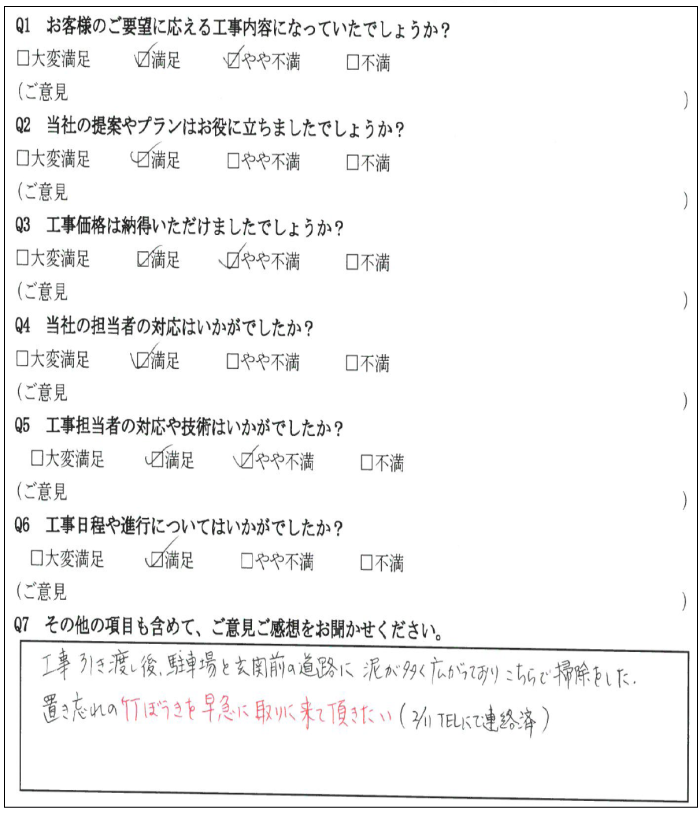 Q1 お客様のご要望に応える工事内容になっていたでしょうか？
□大変満足 ☑満足 ☑やや不満 □不満
(ご意見 )
Q2 当社の提案やプランはお役に立ちましたでしょうか？
□大変満足 ☑満足 □やや不満 □不満
(ご意見 )
Q3 工事価格は納得いただけましたでしょうか？
□大変満足 ☑満足 ☑やや不満 □不満
(ご意見 )
Q4 当社の担当者の対応はいかがでしたか？
□大変満足 ☑満足 □やや不満 □不満
(ご意見 )
Q5 工事担当者の対応や技術はいかがでしたか？
□大変満足 ☑満足 ☑やや不満 □不満
(ご意見 )
Q6 工事日程や進行についてはいかがでしたか？
□大変満足 ☑満足 □やや不満 □不満
(ご意見 )
Q7 その他の項目も含めて、ご意見ご感想をお聞かせください。
工事引き渡し後、駐車場と玄関前の道路に泥が多く広がっておりこちらで掃除をした.
置き忘れの竹ぼうきを早急に取りに来て頂きたい(2/11 TELにて連絡済)